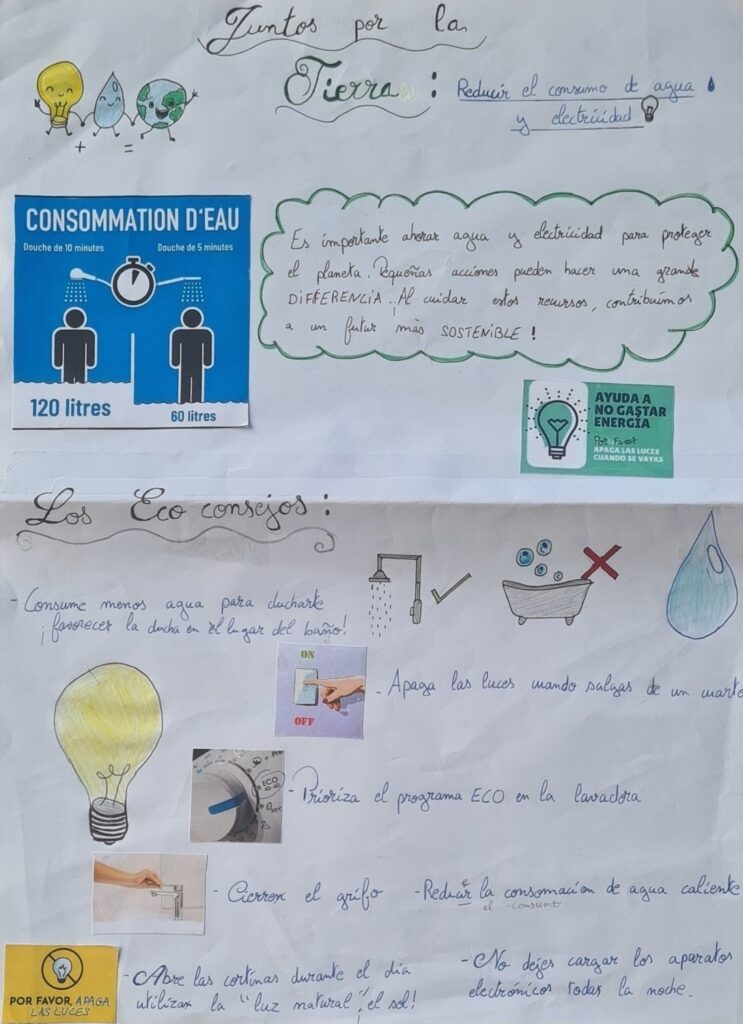 Juntos por la
Tierra :
Reducir el consumo de agua
y electricidad
+ =
CONSOMMATION D'EAU
Douche de 10 minutes
Douche de 5 minutes
120 litres
60 litres
Es importante ahorar agua y electricidad para proteger
el planeta. Pequeñas acciones pueden hacer una grande
DIFFERENCIA. ¡Al cuidar estos recursos, contribuimos
a un futur màs SOSTENIBLE !
AYUDA A
NO GASTAR
ENERGÍA
Por Favor
APAGA LAS LUCES
CUANDO SE VAYAS
Los Eco consejos :
- Consume menos agua para ducharte
¡favorecer la ducha en el lugar del baño!
ON
OFF
- Apaga las luces cuando salgas de un cuarto
ECO
- Prioriza el programa ECO en la lavadora
- Cierren el grifo
- Reducir la consomacion de agua caliente
el consumo
POR FAVOR, APAGA
LAS LUCES
- Abre las cortinas durante el día
utilizan la "luz natural", el sol!
- No dejes cargar los aparatos
electrónicos todas la noche.